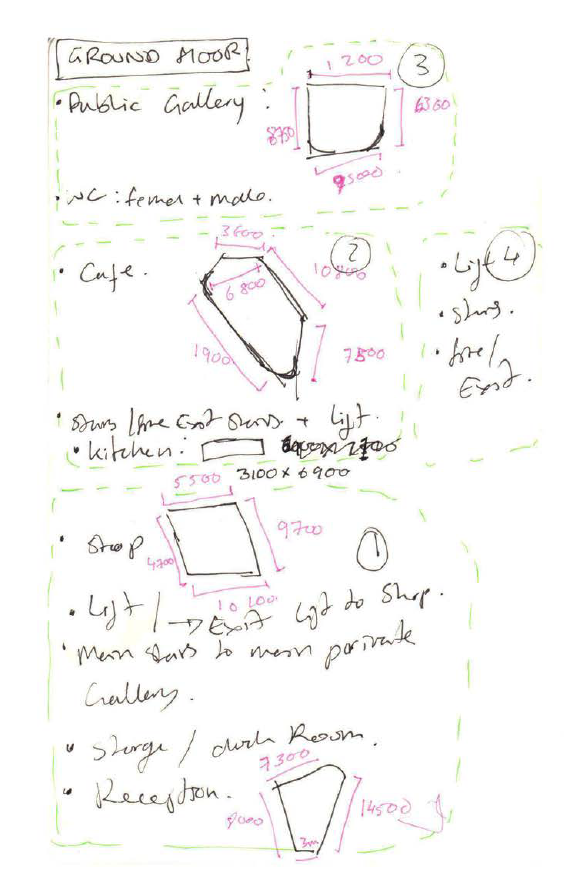 GROUND FLOOR.
1200
3
• Public Gallery :
6300
8750
9500
• WC : femel + male.
3600
2
• Cafe.
10800
6800
1900
7500
• Lift 4
• stairs.
• fire/
Exit.
• stairs / fire Exit stairs + Lift.
• Kitchen :
3100 x 6900
5500
9700
• Shop
4700
1
10 100
• Lift / → Exit Lift to Shop.
• Main stairs to main private
Gallery.
• Storge / Room.
7300
• Reception.
9000
14500
3m